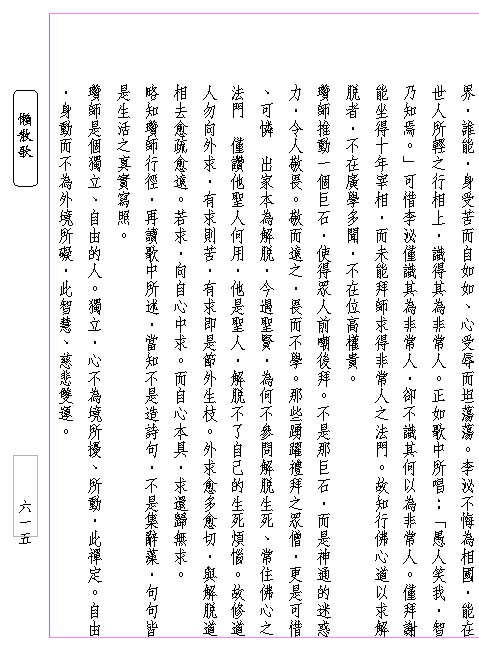 界，誰能，身受苦而自如如、心受辱而坦蕩蕩。李泌不悔為相國，能在
世人所輕之行相上，識得其為非常人。正如歌中所唱：「愚人笑我，智
乃知焉。」可惜李泌僅識其為非常人，卻不識其何以為非常人。僅拜謝
能坐得十年宰相，而未能拜師求得非常人之法門。故知行佛心道以求解
脫者，不在廣學多聞，不在位高權貴。
瓚師推動一個巨石，使得眾人前嘲後拜。不是那巨石，而是神通的迷惑
力，令人敬畏。敬而遠之，畏而不學。那些踴躍禮拜之眾僧，更是可惜
、可憐　出家本為解脫，今遇聖賢，為何不參問解脫生死、常住佛心之
法門　僅讚他聖人何用，他是聖人，解脫不了自己的生死煩惱。故修道
人勿向外求，有求則苦，有求即是節外生枝。外求愈多愈切，與解脫道
相去愈疏愈遠。若求，向自心中求。而自心本具，求還歸無求。
略知瓚師行徑，再讀歌中所述，當知不是造詩句，不是集辭藻，句句皆
是生活之真實寫照。
瓚師是個獨立、自由的人。獨立，心不為境所擾、所動，此禪定。自由
，身動而不為外境所礙，此智慧、慈悲雙運。
懶散歌
六一五